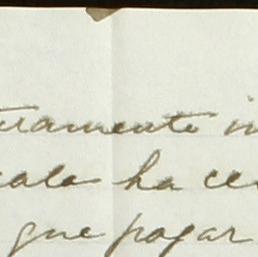 teramente in
cala ha ce
que pagar